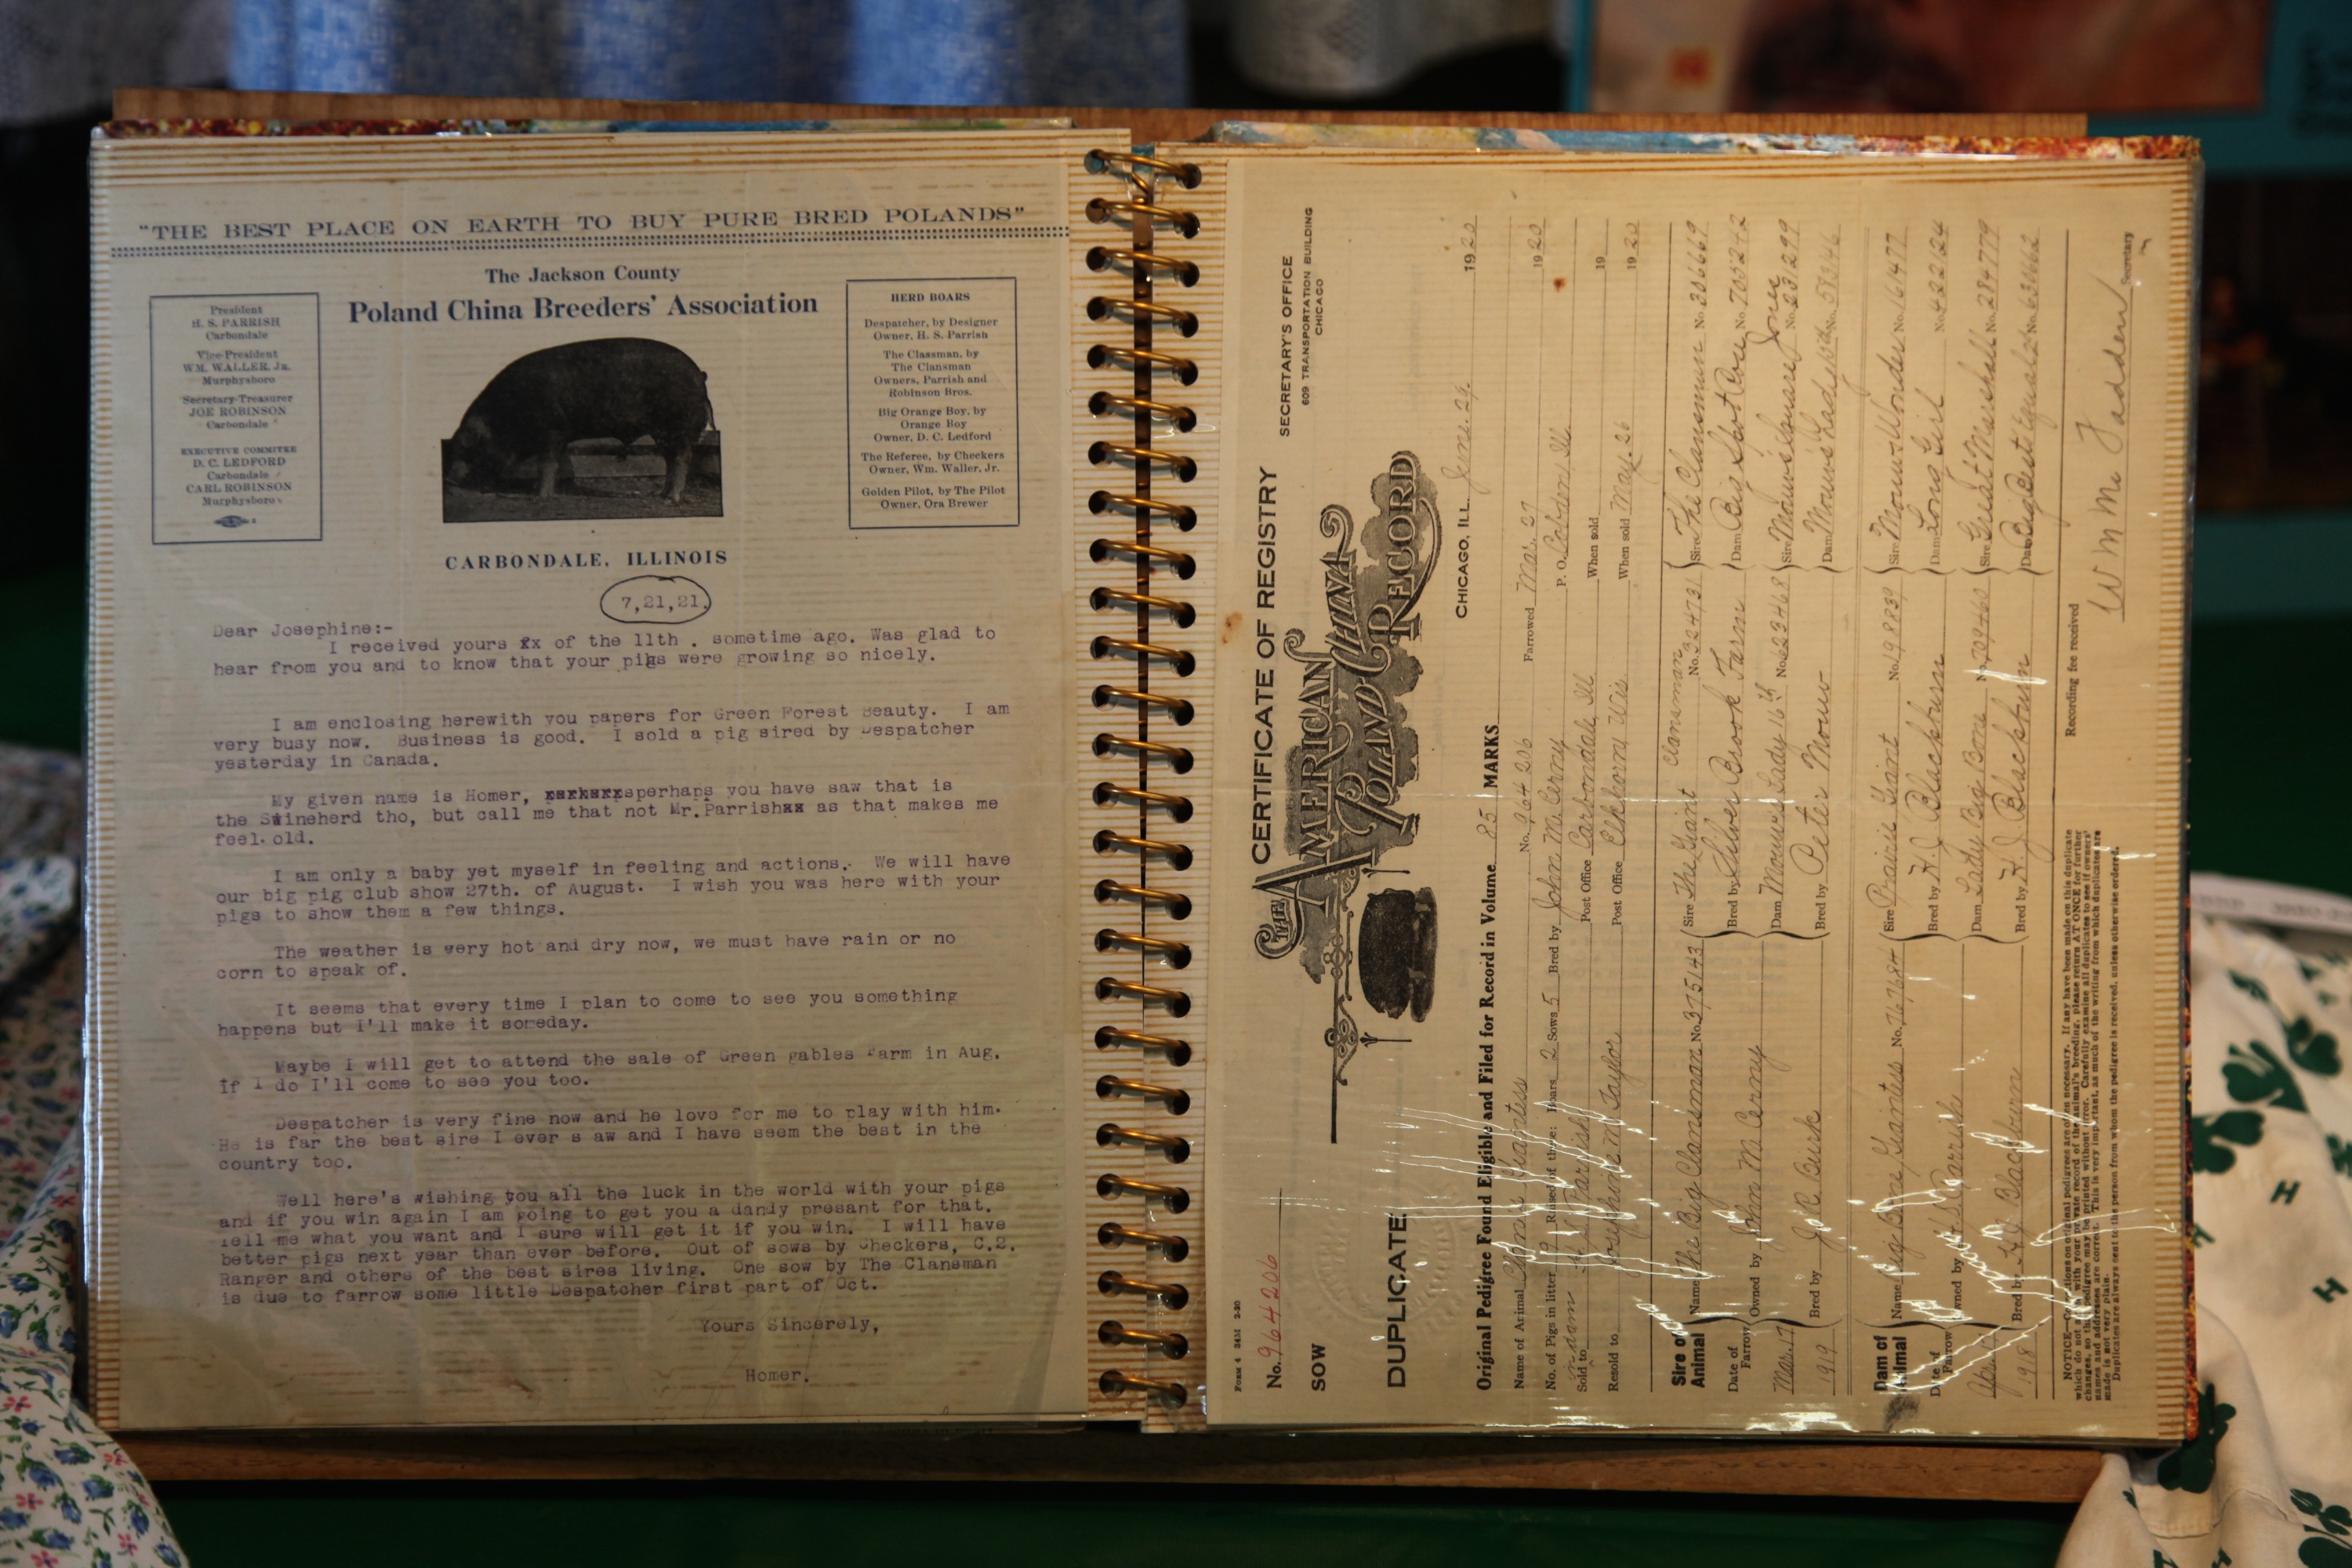 "THE BEST PLACE ON EARTH TO BUY PURE BRED POLANDS"
The Jackson County
Poland China Breeders' Association
President
H. S. PARRISH
Carbondale
Vice-President
WM. WALLER, Jr.
Murphysboro
Secretary-Treasurer
JOE ROBINSON
Carbondale
EXECUTIVE COMMITEE
D. C. LEDFORD
Carbondale
CARL ROBINSON
Murphysboro
HERD BOARS
Despatcher, by Designer
Owner, H. S. Parrish
The Classman, by
The Clansman
Owners, Parrish and
Robinson Bros.
Big Orange Boy, by
Orange Boy
Owner, D. C. Ledford
The Referee, by Checkers
Owner, Wm. Waller, Jr.
Golden Pilot, by The Pilot
Owner, Ora Brewer
CARBONDALE, ILLINOIS
7,21,21.
Dear Josephine:-
I received yours fx of the 11th . sometime ago. Was glad to
hear from you and to know that your pigs were growing so nicely.
I am enclosing herewith you papers for Green Forest Beauty. I am
very busy now. Business is good. I sold a pig sired by Despatcher
yesterday in Canada.
My given name is Homer, perhaps you have saw that is
the Swineherd tho, but call me that not Mr.Parrishxx as that makes me
feel. old.
I am only a baby yet myself in feeling and actions. We will have
our big pig club show 27th. of August. I wish you was here with your
pigs to show them a few things.
The weather is very hot and dry now, we must have rain or no
corn to speak of.
It seems that every time I plan to come to see you something
happens but I'll make it someday.
Maybe I will get to attend the sale of Green gables Farm in Aug.
If I do I'll come to see you too.
Despatcher is very fine now and he love for me to play with him.
He is far the best sire I ever s aw and I have seem the best in the
country too.
Well here's wishing you all the luck in the world with your pigs
and if you win again I am going to get you a dandy presant for that.
Tell me what you want and I sure will get it if you win. I will have
better pigs next year than ever before. Out of sows by Checkers, C.2.
Ranger and others of the best sires living. One sow by The Clansman
is due to farrow some little Despatcher first part of Oct.
Yours Sincerely,
Homer.
Form 4 34M 2-20
No. 964206
CERTIFICATE OF REGISTRY
SECRETARY'S OFFICE
609 TRANSPORTATION BUILDING
CHICAGO
SOW
THE AMERICAN POLAND CHINA RECORD
DUPLICATE
CHICAGO, ILL. June. 29. 1920
Original Pedigree Found Eligible and Filed for Record in Volume 85 MARKS
Name of Animal Giantess No. 964206 Farrowed Mar. 27 1920
No. of Pigs in litter Raised of these: Boars 2 Sows 5 Bred by John McCerny P. O. Ill.
Sold to H S Parrish Post Office Carbondale Ill When sold 19
Resold to Josephine M Taylor Post Office Elkhorn Wis. When sold May. 26 1920
Sire of Animal Name The Big Clansman No. 375143 Sire The Giant Clansman No. 324731 Sire The Clansman No. 306669
Dam Big Spot Con No. 705242
Date of Farrow Mar. 17 1919 Owned by John McCerny Bred by Silver Brook Farm
Bred by J. R. Burk Dam Mouw's Lady 16th No. 623468 Sire Mouw's Jones No. 231299
Bred by Peter Mouw Dam Mouw's Lady 5th No.
Dam of Animal Name Big Bone Giantess No. 767684 Sire Prairie Giant No. 198839 Sire Mouw Wonder No.
Bred by H. J. Blackburn Dam Long Girl No.
Date of Farrow 1918 Owned by H. S. Parrish Dam Lady Big Bone No. Sire Great Marshall No. 284779
Bred by H. J. Blackburn Bred by H. J. Blackburn Dam Big Best No.
Recording fee received Wm McFadden Secretary
NOTICE—Corrections on original pedigrees are often necessary. If any have been made on this duplicate
which do not agree with your private record of the animal's breeding, please return AT ONCE for further
changes, so the pedigree may be printed without error. Carefully examine all duplicates to see if owners'
names and addresses are correct. This is very important, as much of the writing from which duplicates are
made is not very plain.
Duplicates are always sent to the person from whom the pedigree is received, unless otherwise ordered.